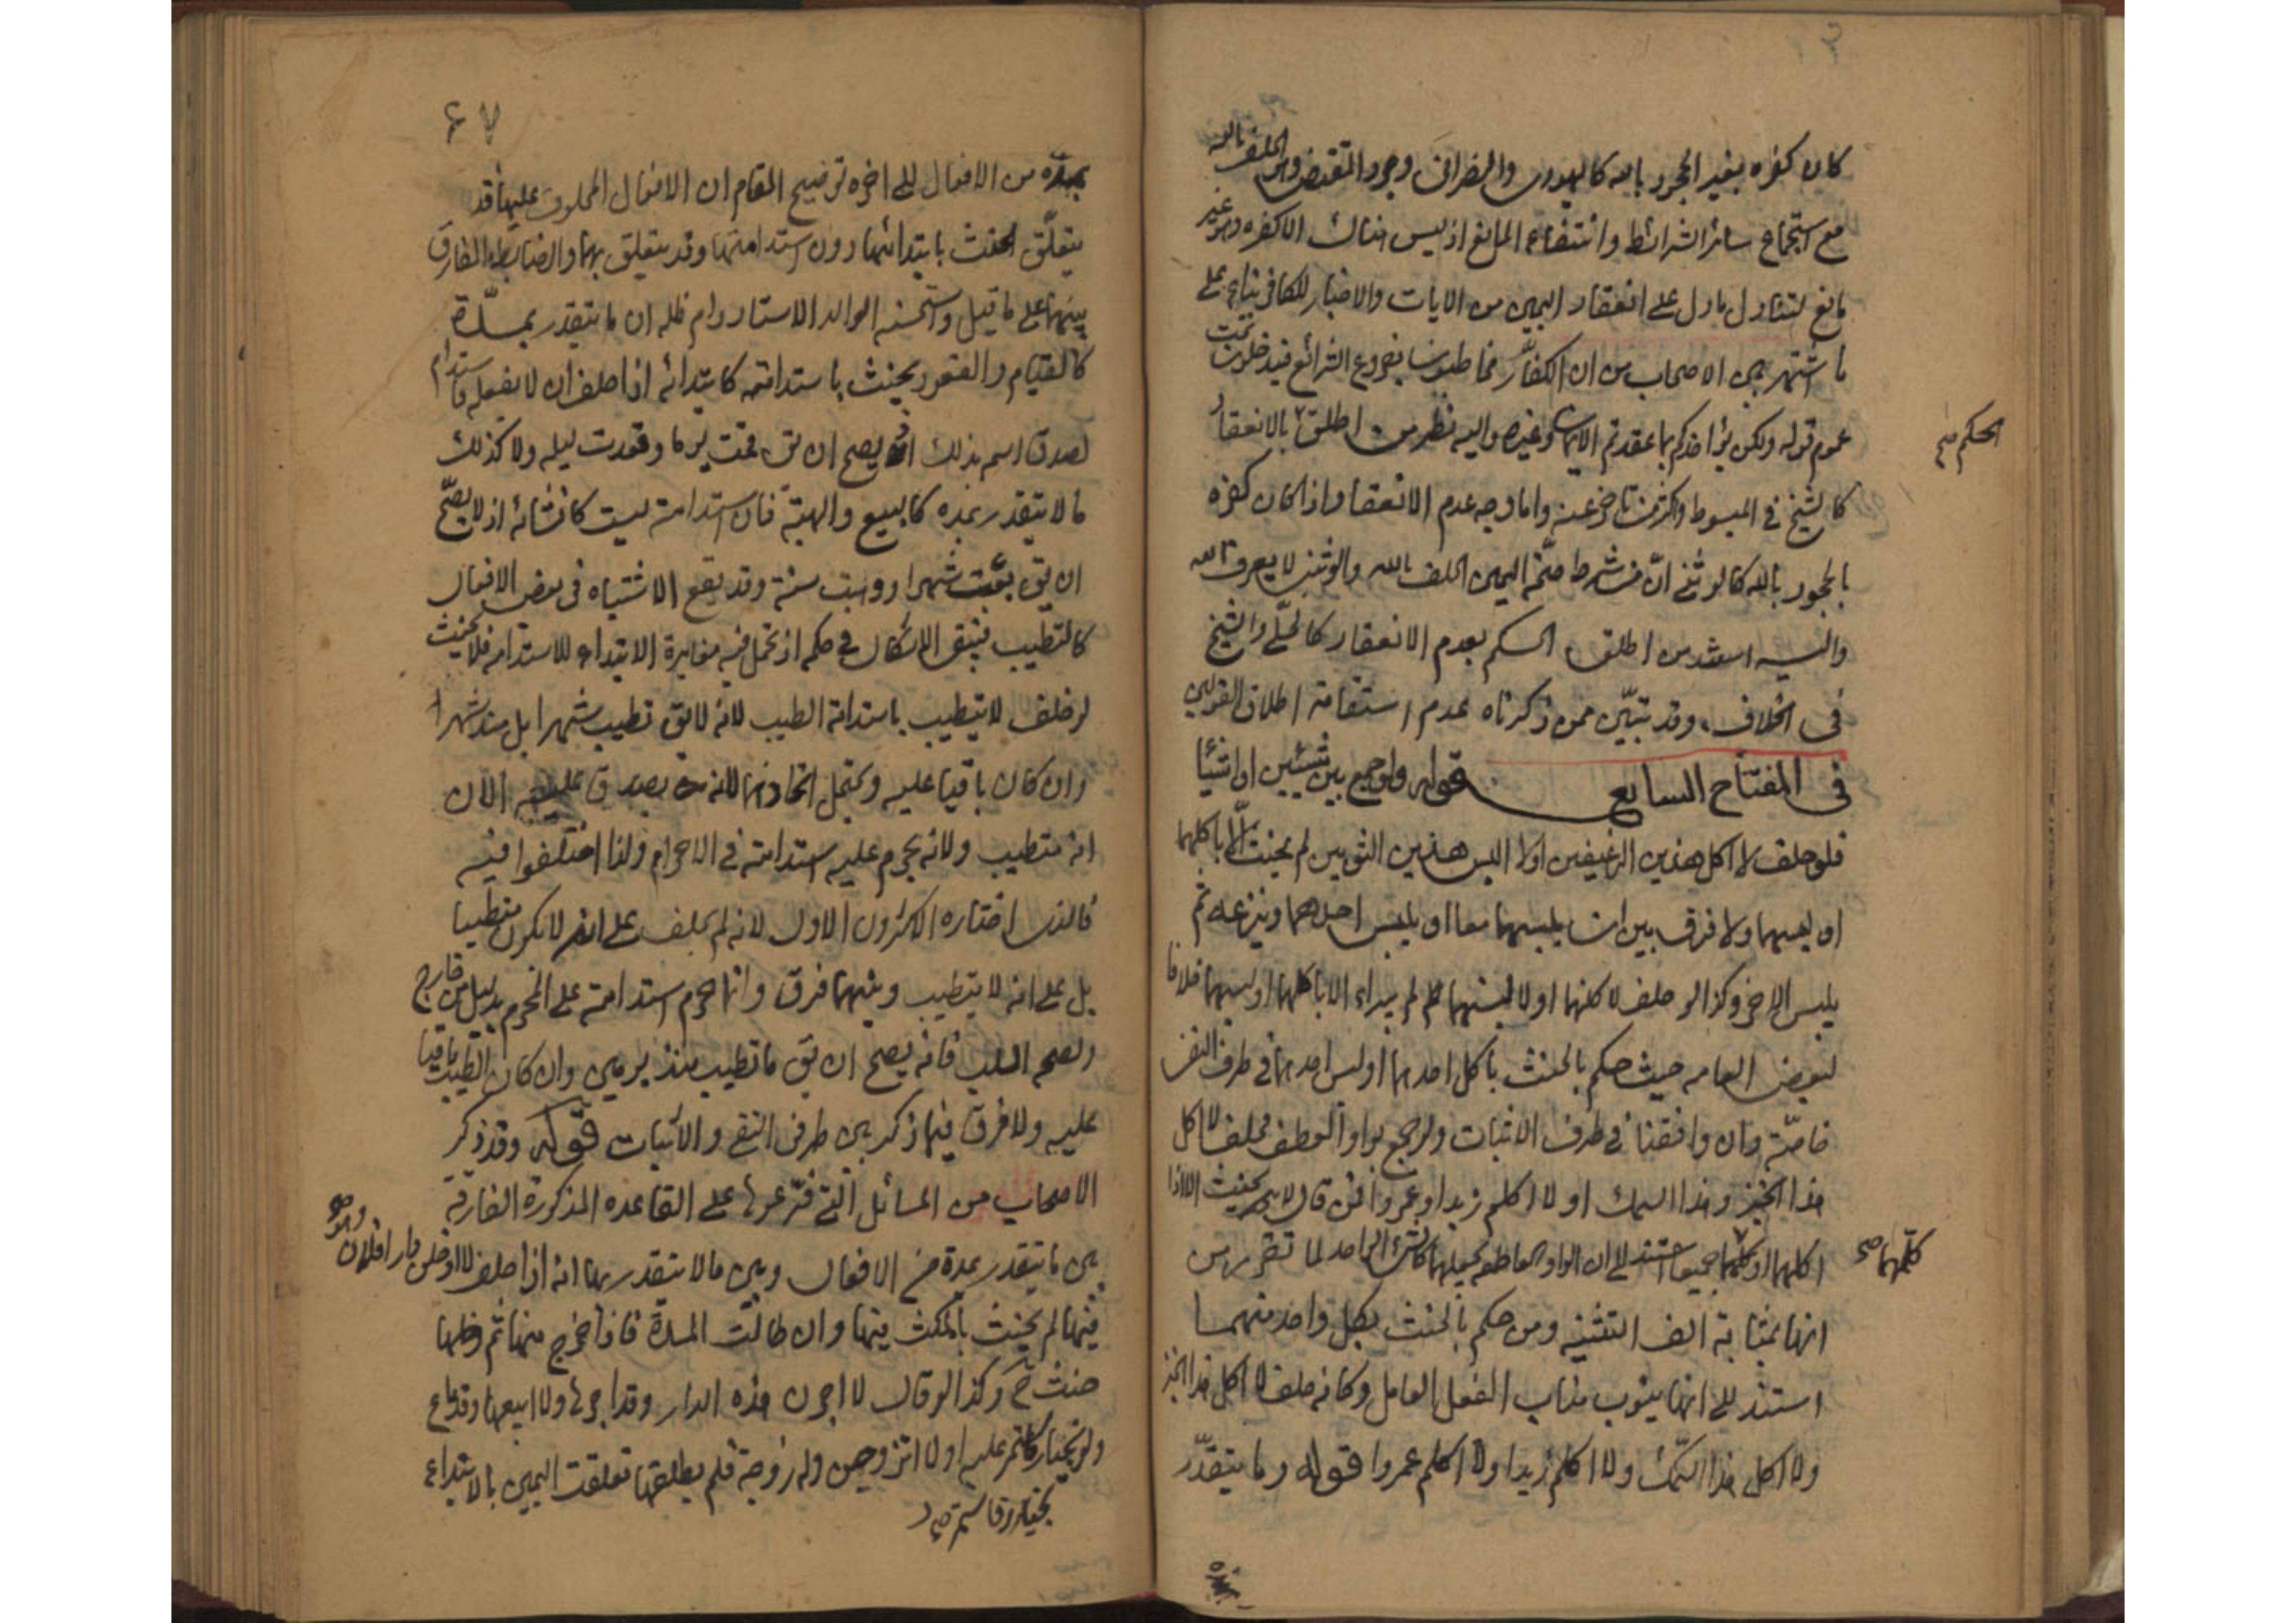 كان كفره بغير الجحود بالله كاليهودى والنصرانى وجود المقتضى وهو الحلف بالله
مع استجماع سائر الشرائط وانتفاء المانع اذ ليس هناك الا كفره وهو غير
مانع لتناول ما دل على انعقاد اليمين من الايات والاخبار للكافر بناء على
ما اشتهر بين الاصحاب من ان الكفّار مخاطبون بفروع الشرائع فيدخلون تحت
عموم قوله ولكن يؤاخذكم بما عقدتم الايمان وغيره واليه نظر من اطلق بالانعقاد
الحكم صح
كالشيخ في المبسوط واكثر من تاخر عنه واما وجه عدم الانعقاد اذا كان كفره
بالجحود بالله كالوثنى انّ من شرط صحّة اليمين الحلف بالله والوثنى لا يعرف الله
واليه استند من اطلق الحكم بعدم الانعقاد كالحلّى والشيخ
فى الخلاف وقد تبيّن ممن ذكرناه عدم استقامة اطلاق القولين
فى المفتاح السابع قوله ولو جمع بين شيئين او اشياء
فلو حلف لا اكل هذين الرغيفين او لا البس هذين الثوبين لم يحنث الّا باكلهما
او لبسهما ولا فرق بين ان يلبسهما معا او يلبس احدهما وينزعه ثم
يلبس الاخر وكذا لو حلف لاكلنهما او لالبسنهما لم يبراء الا باكلهما او لبسهما خلافا
لبعض العامه حيث حكم بالحنث بأكل احدهما او لبس احدهما فى طرف النفى
خاصّة وان وافقنا فى طرف الاثبات ولو جمع بواو العطف فحلف لا اكل
هذا الخبز وهذا السمك او لا اكلم زيدا وعمروا فمن قال لا يحنث الا اذا
اكلهما او كلمهما جميعا استند الى ان الواو العاطفه تجعلهما كالشئ الواحد لما تقرر من
كلّمهما صح
انها بمثابة الف التثنيه ومن حكم بالحنث بكل واحد منهما
استند الى انها ينوب مناب الفعل العامل وكانه حلف لا اكل هذا الخبز
ولا اكل هذا السّمك ولا اكلم زيدا ولا اكلم عمروا قوله وما يتقدّر
٦٧
بمدّة من الافعال الى اخره توضيح المقام ان الافعال المحلوف عليها قد
يتعلّق الحنث بابتدائها دون استدامتها وقد يتعلق بهما والضابطه الفارق
بينهما على ما قيل واستحسنه الوالد الاستاد دام ظله ان ما يتقدر بمدّة
كالقيام والقعود يحنث باستدامته كابتدائه اذا حلف ان لا يفعله فاستدام
لصدق اسم بذلك اذ يصح ان يق قمت يوما وقعدت ليله ولا كذلك
ما لا يتقدر بمده كالبيع والهبة فان استدامته ليست كانشائه اذ لا يصّح
ان يق بعت شهرا ووهبت سنة وقد يقع الاشتباه فى بعض الافعال
كالتطيب فيبق الاشكال في حكمه اذ تحتمل فيه مغايرة الابتداء للاستدامه فلا يحنث
لو حلف لا يتطيب باستدامة الطيب لانه لا يق تطيب شهرا بل منذ شهرا
وان كان باقيا عليه ويحتمل اتحادهما لانه يصدق عليه الان
انه متطيب ولانه يحرم عليه استدامته فى الاحرام ولذا اختلفوا فيه
فالذى اختاره الاكثرون الاول لانه لم يحلف على انه لا يكون متطيبا
بل على انه لا يتطيب وبينهما فرق وانما حرم استدامته على المحرم بدليل من خارج
ولصحه السلب فانه يصح ان يق ما تطيب منذ يومين وان كان الطيب باقيا
عليه ولا فرق فيما ذكر بين طرفى النفى والاثبات قوله وقد ذكر
الاصحاب من المسائل التّى فرّعوها على القاعده المذكورة الفارقة
بين ما يتقدر بمدة من الافعال وبين ما لا يتقدر بها انه اذا حلف لا ادخلن دار فلان وهو
فيها لم يحنث بالمكث فيها وان طالت المدة فاذا خرج منها ثم دخلها
حنث ح وكذا لو قال لا اجرت هذه الدار وقد اجرها ولا ابيعها وقد باع
ولو بخيار فاستمر عليه او لا اتزوجن وله زوجة فلم يطلقها تعلقت اليمين بالابتداء